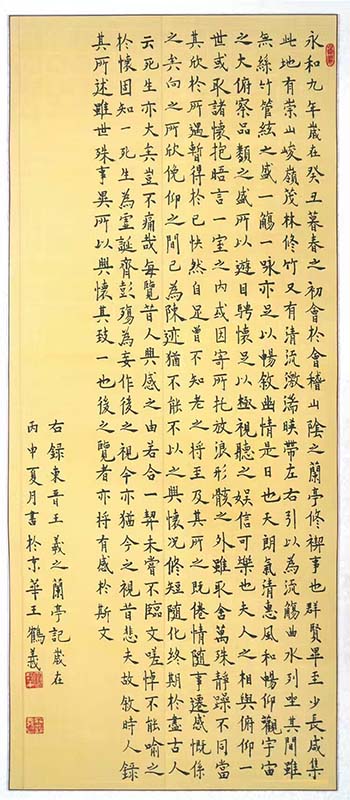 永和九年歲在癸丑暮春之初會於會稽山陰之蘭亭修禊事也群賢畢至少長咸集
此地有崇山峻嶺茂林修竹又有清流激湍暎帶左右引以為流觴曲水列坐其間雖
無絲竹管絃之盛一觴一咏亦足以暢敘幽情是日也天朗氣清惠風和暢仰觀宇宙
之大俯察品類之盛所以遊目騁懷足以極視聽之娛信可樂也夫人之相與俯仰一
世或取諸懷抱晤言一室之內或因寄所托放浪形骸之外雖取舍萬殊靜躁不同當
其欣於所遇暫得於己快然自足曾不知老之將至及其所之既倦情隨事遷感慨係
之矣向之所欣俛仰之間已為陳迹猶不能不以之興懷况修短隨化終期於盡古人
云死生亦大矣豈不痛哉每覽昔人興感之由若合一契未嘗不臨文嗟悼不能喻之
於懷固知一死生為虛誕齊彭殤為妄作後之視今亦猶今之視昔悲夫故敘時人錄
其所述雖世殊事異所以興懷其致一也後之覽者亦將有感於斯文
右錄東晉王羲之蘭亭記歲在
丙申夏月書於京華王鶴義